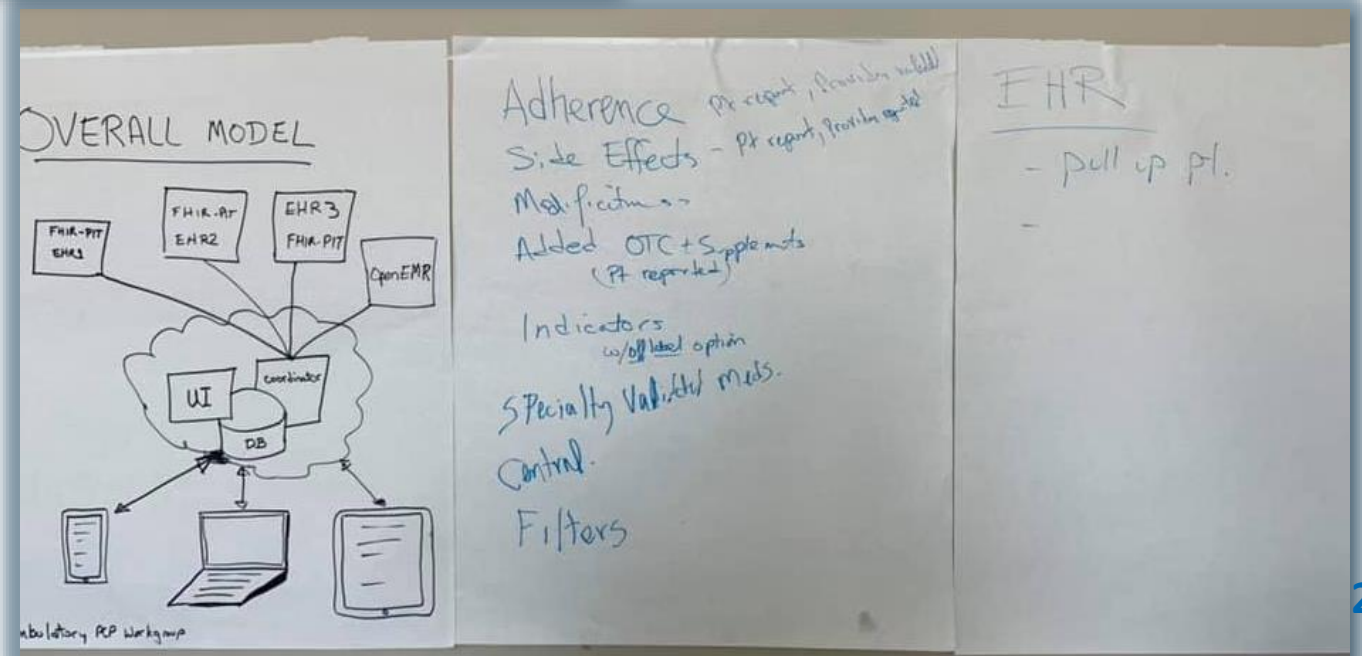 OVERALL MODEL
FHIR-PIT
EHR1
FHIR-PIT
EHR2
EHR3
FHIR-PIT
OpenEMR
UI
coordinator
DB
mbulatory PCP Workgroup
Adherence Pt report, Provider
Side Effects - Pt report, Provider reported
Modifications
Added OTC + Supplements
(Pt reported)
Indicators
w/off label option
Specialty Validated meds.
Control.
Filters
EHR
- pull up pt.
-
2